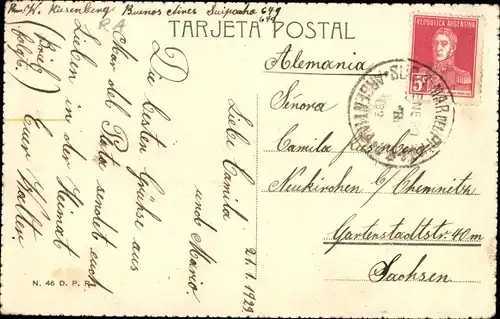 W. Kiesenberg Buenos Aires Suipacha 679
TARJETA POSTAL
Liebe Camila
und Mario
21.1.1929
Die besten Grüsse aus
Mar del Plata sendet euch
Lieben in der Heimat
Euer Walter.
(Brief
folgt.)
Alemania
Señora
Camila Kiesenberg
Neukirchen b/ Chemnitz
Gartenstadtstr. 40 m
Sachsen
REPUBLICA ARGENTINA
5
MAR DEL PLATA
N. 46 D. P. R.